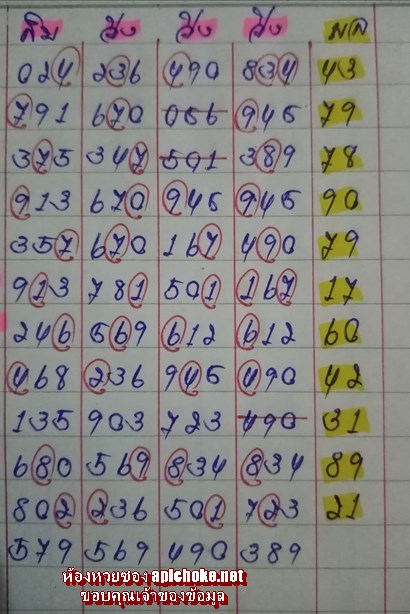 เดิม วิ่ง วิ่ง วิ่ง ผล
024 236 490 834 43
791 670 056 945 79
375 347 501 389 78
913 670 945 945 90
357 670 167 490 79
913 781 501 167 17
246 569 612 612 60
468 236 945 490 42
135 903 723 490 31
680 569 834 834 89
802 236 501 723 21
579 569 490 389
ห้องหวยซอง apichoke.net
ขอบคุณเจ้าของข้อมูล